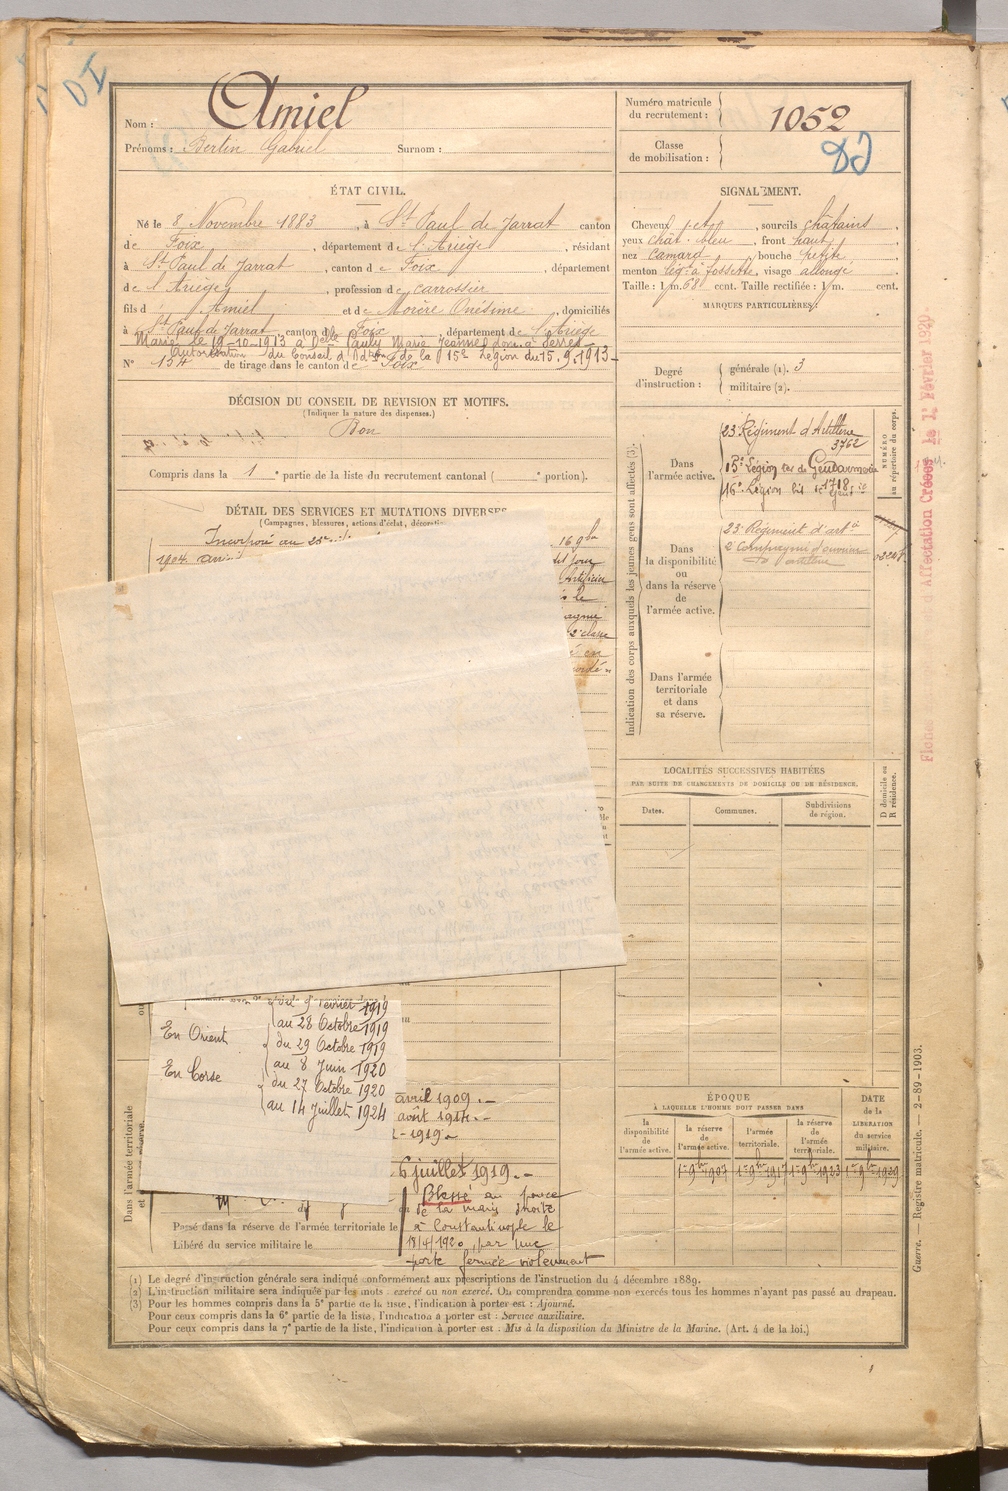 DI
Nom : Amiel
Prénoms : Bertin Gabriel Surnom :
Numéro matricule du recrutement : 1052
Classe de mobilisation :
ÉTAT CIVIL.
Né le 8 Novembre 1883, à St Paul de Jarrat canton
de Foix, département de l'Ariège, résidant
à St Paul de Jarrat, canton de Foix, département
de l'Ariège, profession de carrossier
fils d Amiel et de Morère Onésime, domiciliés
à St Paul de Jarrat, canton de Foix, département de l'Ariège
Marié le 19-10-1913 à Delle Pauly Marie Jeanne dom. à Serres
Autorisation du Conseil d'Adton de la 15e Légion du 15.9.1913-
N° 154 de tirage dans le canton de Foix
SIGNALEMENT.
Cheveux , sourcils châtains
yeux chât. bleu, front haut
nez camard, bouche petite
menton lég. à fossette, visage allongé
Taille : 1 m. 68 cent. Taille rectifiée : 1 m. cent.
MARQUES PARTICULIÈRES
Degré d'instruction : générale (1). 3
militaire (2).
DÉCISION DU CONSEIL DE REVISION ET MOTIFS.
(Indiquer la nature des dispenses.)
Bon
Compris dans la 1 e partie de la liste du recrutement cantonal ( e portion).
DÉTAIL DES SERVICES ET MUTATIONS DIVERSES
(Campagnes, blessures, actions d'éclat, décorations
Incorporé au 23e
16 9bre
1904
dit jour
Artificier
le
2e classe
Indication des corps auxquels les jeunes gens sont affectés (3).
Dans l'armée active.
23e Régiment d'Artillerie
3762
15e Légion bis de Gendarmerie
16e Légion bis 1718
NUMÉRO au répertoire du corps.
Dans la disponibilité ou dans la réserve de l'armée active.
23e Régiment d'artie
2e Compagnie d'ouvriers
d'artillerie
Dans l'armée territoriale et dans sa réserve.
LOCALITÉS SUCCESSIVES HABITÉES
PAR SUITE DE CHANGEMENTS DE DOMICILE OU DE RÉSIDENCE.
Dates. Communes. Subdivisions de région. D domicile ou R résidence.
Affectation Créées le 1er Février 1920.
février 1919
au 28 Octobre 1919
En Orient du 29 Octobre 1919
au 8 Juin 1920
En Corse du 27 Octobre 1920
au 14 Juillet 1924
avril 1909.-
août 1914.-
1919
6 juillet 1919.-
Blessé au pouce
de la main droite
à Constantinople le
18/4/1920, par une
porte fermée violemment
Dans l'armée territoriale et
Passé dans la réserve de l'armée territoriale le
Libéré du service militaire le
ÉPOQUE
À LAQUELLE L'HOMME DOIT PASSER DANS
la disponibilité de l'armée active. la réserve de l'armée active. l'armée territoriale. la réserve de l'armée territoriale. DATE de la LIBÉRATION du service militaire.
1er 9bre 1907 1er 9bre 1917 1er 9bre 1923 1er 9bre 1929
(1) Le degré d'instruction générale sera indiqué conformément aux prescriptions de l'instruction du 4 décembre 1889.
(2) L'instruction militaire sera indiquée par les mots : exercé ou non exercé. On comprendra comme non exercés tous les hommes n'ayant pas passé au drapeau.
(3) Pour les hommes compris dans la 5e partie de la liste, l'indication à porter est : Ajourné.
Pour ceux compris dans la 6e partie de la liste, l'indication à porter est : Service auxiliaire.
Pour ceux compris dans la 7e partie de la liste, l'indication à porter est : Mis à la disposition du Ministre de la Marine. (Art. 4 de la loi.)
Guerre. — Registre matricule. — 2-89-1903.